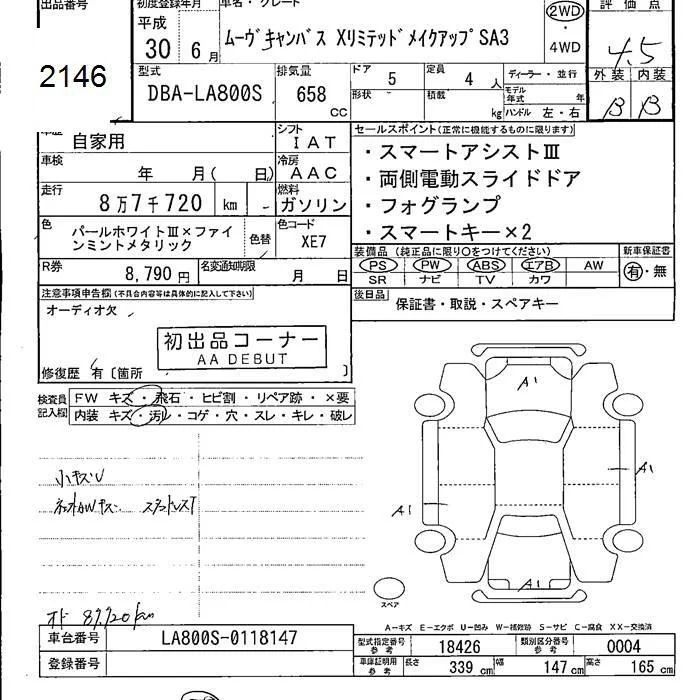 出品番号
初度登録年月
車名・グレード
評価点
2146
平成
30 6月
ムーヴ キャンバス Xリミテッド メイクアップ SA3
2WD
・
4WD
4.5
型式
排気量
ドア
定員
ディーラー・並行
外装 内装
DBA-LA800S
658
CC
5
4人
形状
積載
kg
モデル年式
年
ハンドル 左・右
B B
自家用
シフト
IAT
セールスポイント(正常に機能するものに限ります)
車検
年 月( 日)
冷房
AAC
・スマートアシストⅢ
走行
8万7千720 km
燃料
ガソリン
・両側電動スライドドア
・フォグランプ
・スマートキー×2
色
パールホワイトⅢ×ファインミントメタリック
色替
色コード
XE7
装備品(純正品に限り○をつけてください)
新車保証書
PS PW ABS エアB AW
有・無
SR ナビ TV カワ
R券
8,790円
名変通知期限
月 日
注意事項申告欄(不具合内容等は具体的に記入して下さい)
後日品
保証書・取説・スペアキー
オーディオ欠
初出品コーナー
AA DEBUT
修復歴 有〔箇所 〕
検査員記入欄
FW キズ・飛石・ヒビ割・リペア跡・×要
内装 キズ・汚レ・コゲ・穴・スレ・キレ・破レ
A1
A1
A1
A1
小キズU
スペア
オド 87,720km
A-キズ E-エクボ U-凹み W-補修跡 S-サビ C-腐食 XX-交換済
車台番号
LA800S-0118147
型式指定番号
参考
18426
類別区分番号
参考
0004
登録番号
車庫証明用
参考
長さ
339 cm
幅
147 cm
高さ
165 cm